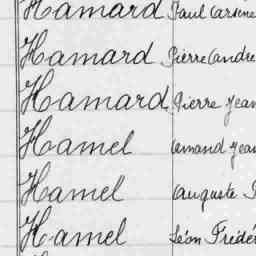 Hamard Paul Arsène
Hamard Pierre André
Hamard Pierre Jean
Hamel Amand Jean
Hamel Auguste
Hamel Léon Frédér